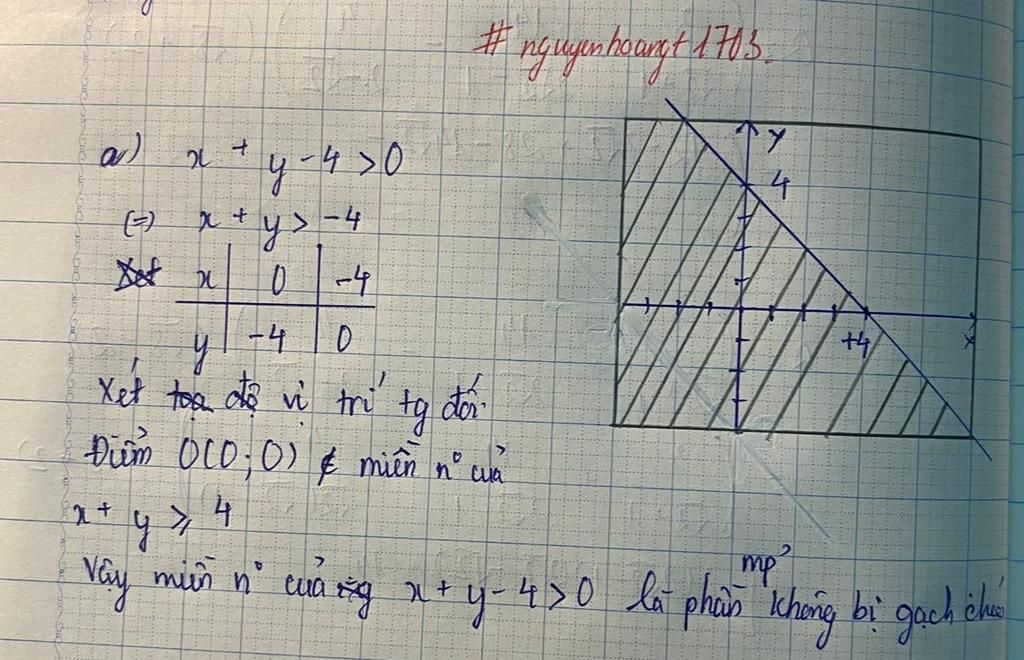 # nguyenhoangt1703.
a) x + y - 4 > 0
(=) x + y > -4
x | 0 | -4
y | -4 | 0
Xét toạ độ vị trí tg đối.
Điểm O(0;0) ∉ miền n° của
x + y ⩾ 4
Vậy miền n° của x + y - 4 > 0 là phần mp' không bị gạch chéo
y
4
+4
x